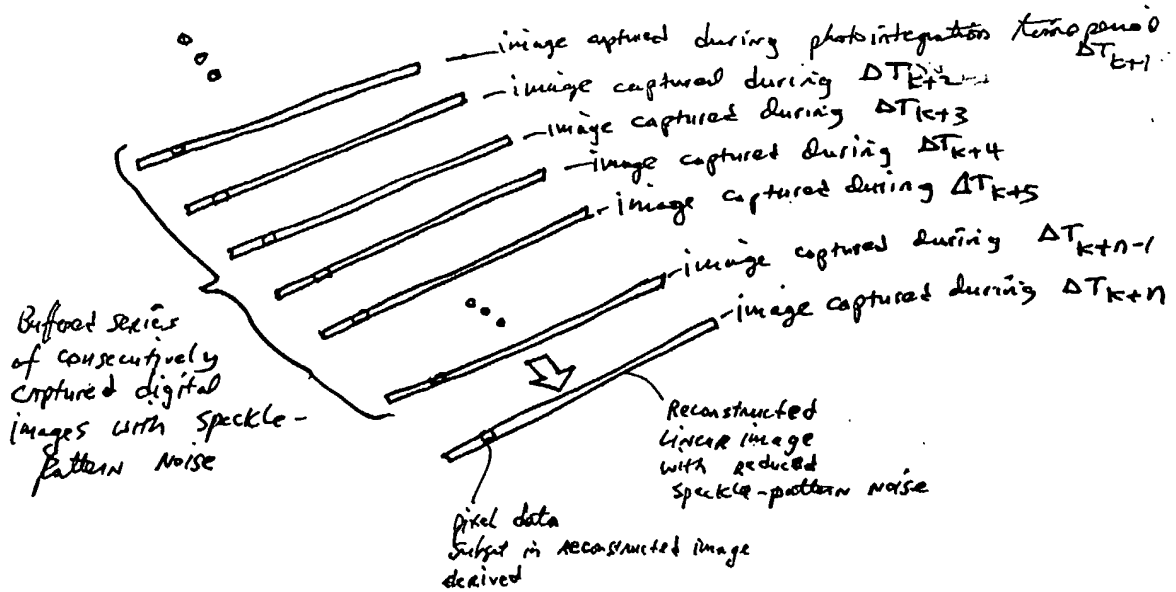 image captured during photointegration time period
ΔT_{k+1}
image captured during ΔT_{k+2}
image captured during ΔT_{k+3}
image captured during ΔT_{k+4}
image captured during ΔT_{k+5}
image captured during ΔT_{k+n-1}
image captured during ΔT_{k+n}
Buffered series
of consecutively
captured digital
images with speckle-
pattern noise
Reconstructed
linear image
with reduced
speckle-pattern noise
pixel data
subset in reconstructed image
derived